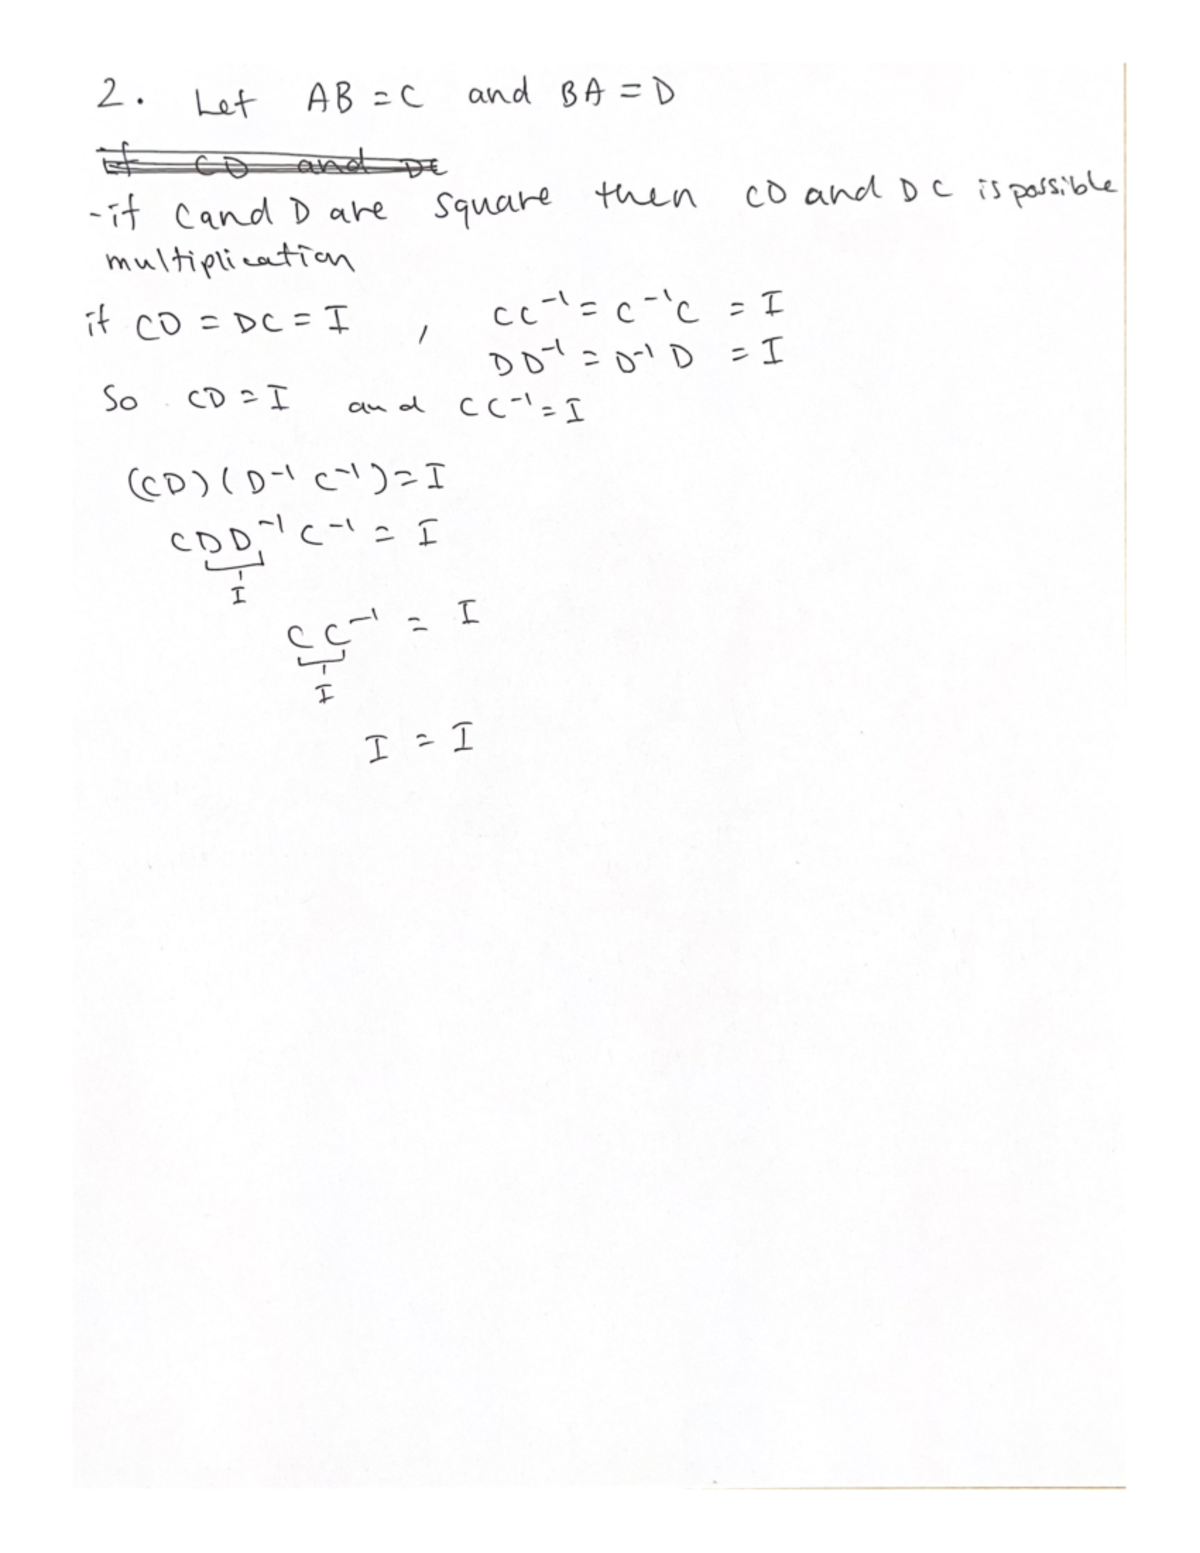 2. Let AB = C and BA = D
If CD and DC
- if C and D are square then CD and DC is possible
multiplication
if CD = DC = I , CC⁻¹ = C⁻¹C = I
DD⁻¹ = D⁻¹D = I
So CD = I and CC⁻¹ = I
(CD)(D⁻¹C⁻¹) = I
CDD⁻¹C⁻¹ = I
I
CC⁻¹ = I
I
I = I